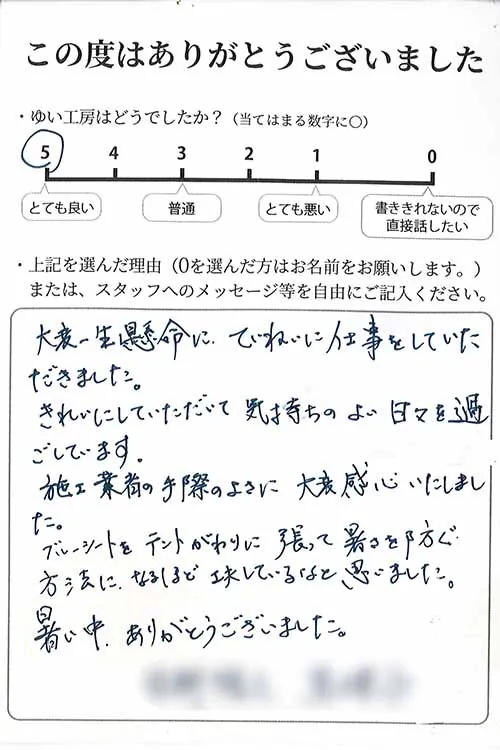 この度はありがとうございました
・ゆい工房はどうでしたか？（当てはまる数字に○）
5 4 3 2 1 0
とても良い 普通 とても悪い 書ききれないので
直接話したい
・上記を選んだ理由（0を選んだ方はお名前をお願いします。）
または、スタッフへのメッセージ等を自由にご記入ください。
大変一生懸命に、ていねいに仕事をしていた
だきました。
きれいにしていただいて 気持ちの よい 日々を過
ごしています。
施工業者の手際のよさに 大変感心いたしまし
た。
ブルーシートを テントがわりに 張って 暑さを防ぐ
方法に、なるほど 工夫しているなと 思いました。
暑い中、ありがとうございました。